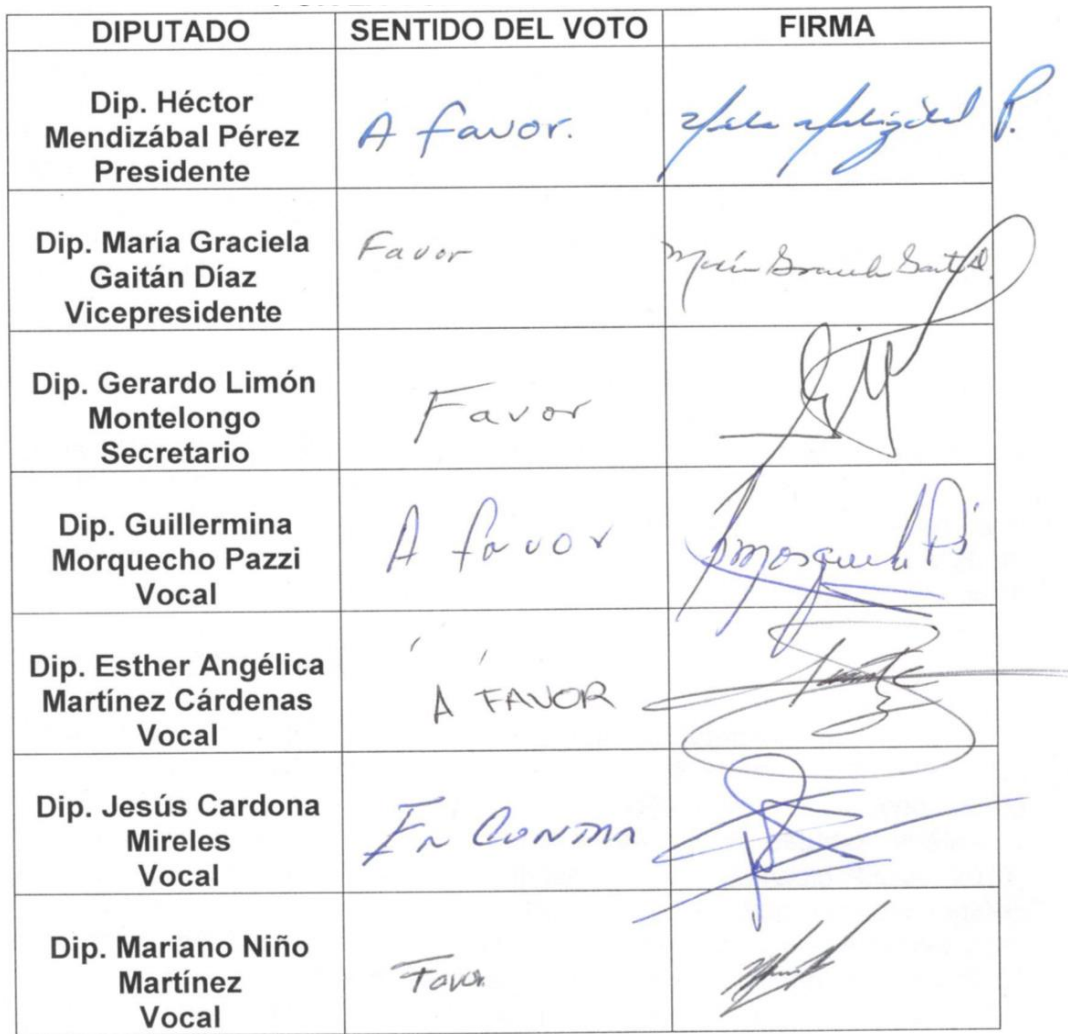 DIPUTADO SENTIDO DEL VOTO FIRMA
Dip. Héctor
Mendizábal Pérez
Presidente
A favor.
Dip. María Graciela
Gaitán Díaz
Vicepresidente
Favor
María Graciela Gaitán D.
Dip. Gerardo Limón
Montelongo
Secretario
Favor
Dip. Guillermina
Morquecho Pazzi
Vocal
A favor
Dip. Esther Angélica
Martínez Cárdenas
Vocal
A FAVOR
Dip. Jesús Cardona
Mireles
Vocal
En CONTRA
Dip. Mariano Niño
Martínez
Vocal
Favor